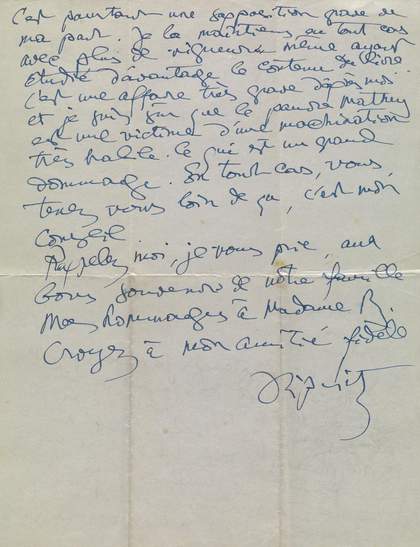 C'est pourtant une supposition grave de
ma part. Je la maintiens en tout cas
avec plus de rigueur même ayant
étudié davantage le contenu du livre
C'est une affaire très grave d'après moi..
et je suis sûr que le pauvre Mathey
est une victime d'une machination
très habile. Ce qui est un grand
dommage. En tout cas, vous,
tenez vous loin de ça, c'est mon
conseil
Rappelez moi, je vous prie, aux
bons souvenirs de votre famille
Mes hommages à Madame R.
Croyez à mon amitié fidèle